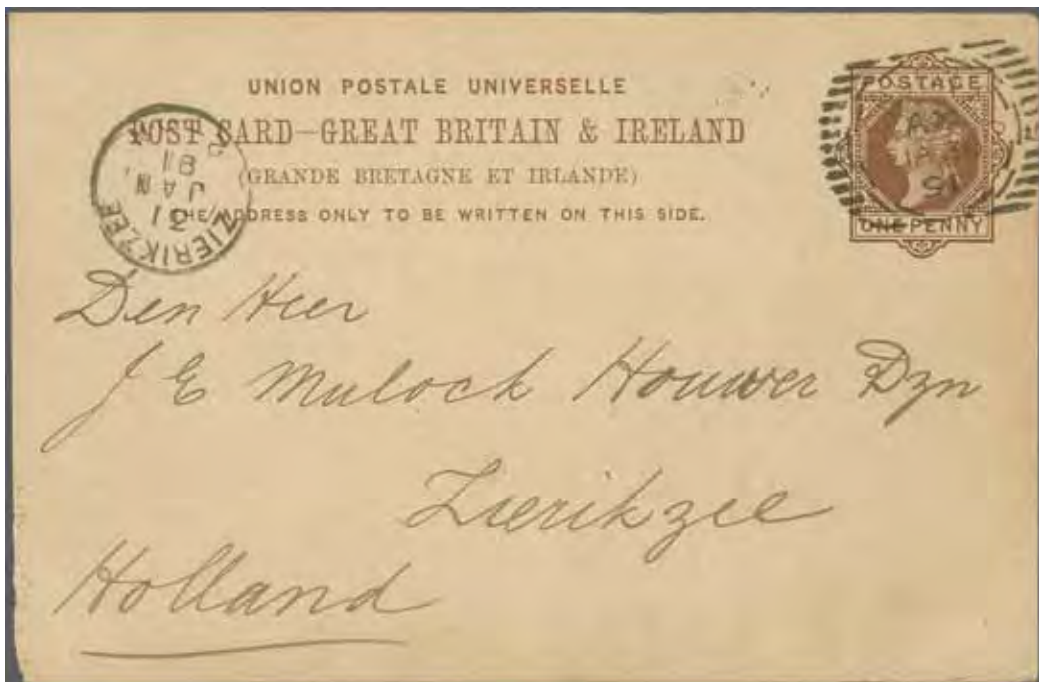 UNION POSTALE UNIVERSELLE
POST CARD—GREAT BRITAIN & IRELAND
(GRANDE BRETAGNE ET IRLANDE)
THE ADDRESS ONLY TO BE WRITTEN ON THIS SIDE.
POSTAGE
ONE PENNY
ZIERIKZEE
31
JAN
Den Heer
J E Muloch Houwer Dzn
Zierikzee
Holland